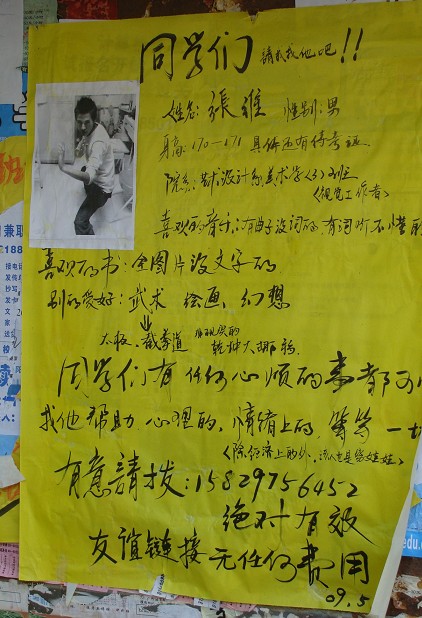 同学们 請来找他吧!!
姓名:張維 性别:男
身高:170—171 具体还有待考证
院系:艺术设计系美术学(3)班
《视觉工作者》
喜欢的音乐:有曲子没词的,有词听不懂的
喜欢的书:全图片没文字的
别的爱好:武术 绘画,幻想
太极,截拳道 乾坤大挪移
同学们有任何心烦的事都可以
找他帮助,心理的,情绪上的,等等一切
有意請拨:15829756452
绝对有效
友谊链接 无任何费用
09.5